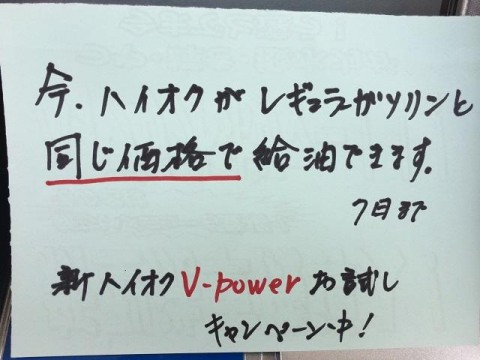 今、ハイオクがレギュラーガソリンと
同じ価格で給油できます。
7日まで
新ハイオクV-powerお試し
キャンペーン中!